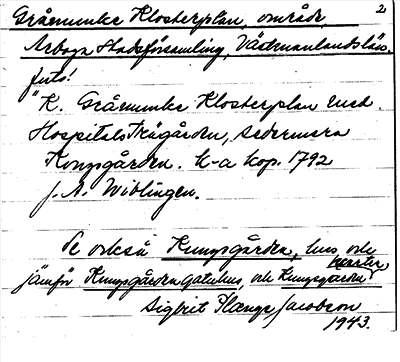 Gråmunke Klosterplan, område, 2
Arboga Stadsförsamling, Västmanlandslän.
"K. Gråmunke Klosterplan med.
HospitalsTrägården, sedermera
Kongsgården. k-a kop. 1792
J. A. Wiblingen.
Se också Kungsgården, hus och
kvarter,
jämför Kungsgården gatuhus, och Kungsgården
Sigbrit Plænge Jacobson
1943.